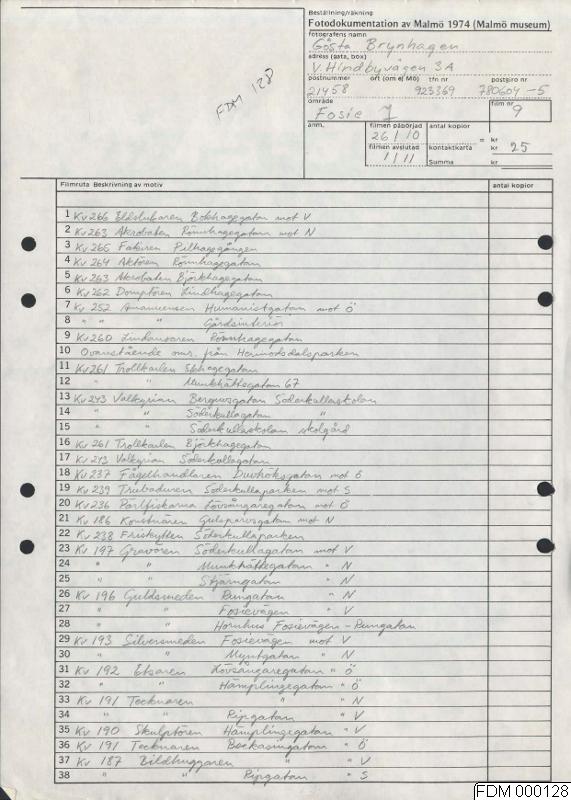 Beställning/räkning
Fotodokumentation av Malmö 1974 (Malmö museum)
fotografens namn
Gösta Brynhagen
adress (gata, box)
V. Hindbyvägen 3A
postnummer ort (om ej Mö) tfn nr postgiro nr
21458 923369 780604-5
område film nr
Fosie 7 9
anm. filmen påbörjad antal kopior
26/10 = kr
filmen avslutad kontaktkarta kr 25
1/11 Summa kr
FDM 128
Filmruta Beskrivning av motiv antal kopior
1 Kv 266 Eldslukaren Bokhagegatan mot V
2 Kv 263 Akrobaten Rönnhagegatan mot N
3 Kv 265 Fakiren Pilhagegången
4 Kv 264 Aktören Rönnhagegatan
5 Kv 263 Akrobaten Björkhagegatan
6 Kv 262 Domptören Lindhagegatan
7 Kv 252 Humanistgatan mot Ö
8 " " " Gårdsinteriör
9 Kv 260 Lindansaren Rönnhagegatan
10 Ovanstående omr. från Hermodsdalsparken
11 Kv 261 Trollkarlen Ekhagegatan
12 " " Munkhättegatan 67
13 Kv 243 Valkyrian Bergsgatan Söderkullaskolan
14 " " Söderkullagatan "
15 " " Söderkullaskolan skolgård
16 Kv 261 Trollkarlen Björkhagegatan
17 Kv 243 Valkyrian Söderkullagatan
18 Kv 237 Fågelhandlaren Duvhöksgatan mot Ö
19 Kv 239 Trubaduren Söderkullaparken mot S
20 Kv 236 Pärlfiskarna Lövsångaregatan mot Ö
21 Kv 186 Konstnären Gulsparvsgatan mot N
22 Kv 238 Friskytten Söderkullaparken
23 Kv 197 Gravören Söderkullagatan mot V
24 " " Munkhättegatan " N
25 " " Stjärngatan " N
26 Kv 196 Guldsmeden Rungatan " N
27 " " Fosievägen " V
28 " " Hörnhus Fosievägen - Rungatan
29 Kv 193 Silversmeden Fosievägen mot V
30 " " Myntgatan " N
31 Kv 192 Etsaren Lövsångaregatan " Ö
32 " " Hämplingegatan " Ö
33 Kv 191 Tecknaren " " N
34 " " Ripgatan " V
35 Kv 190 Skulptören Hämplingegatan " V
36 Kv 191 Tecknaren Beckasingatan " Ö
37 Kv 187 Bildhuggaren " " V
38 " " Ripgatan " S
FDM 000128